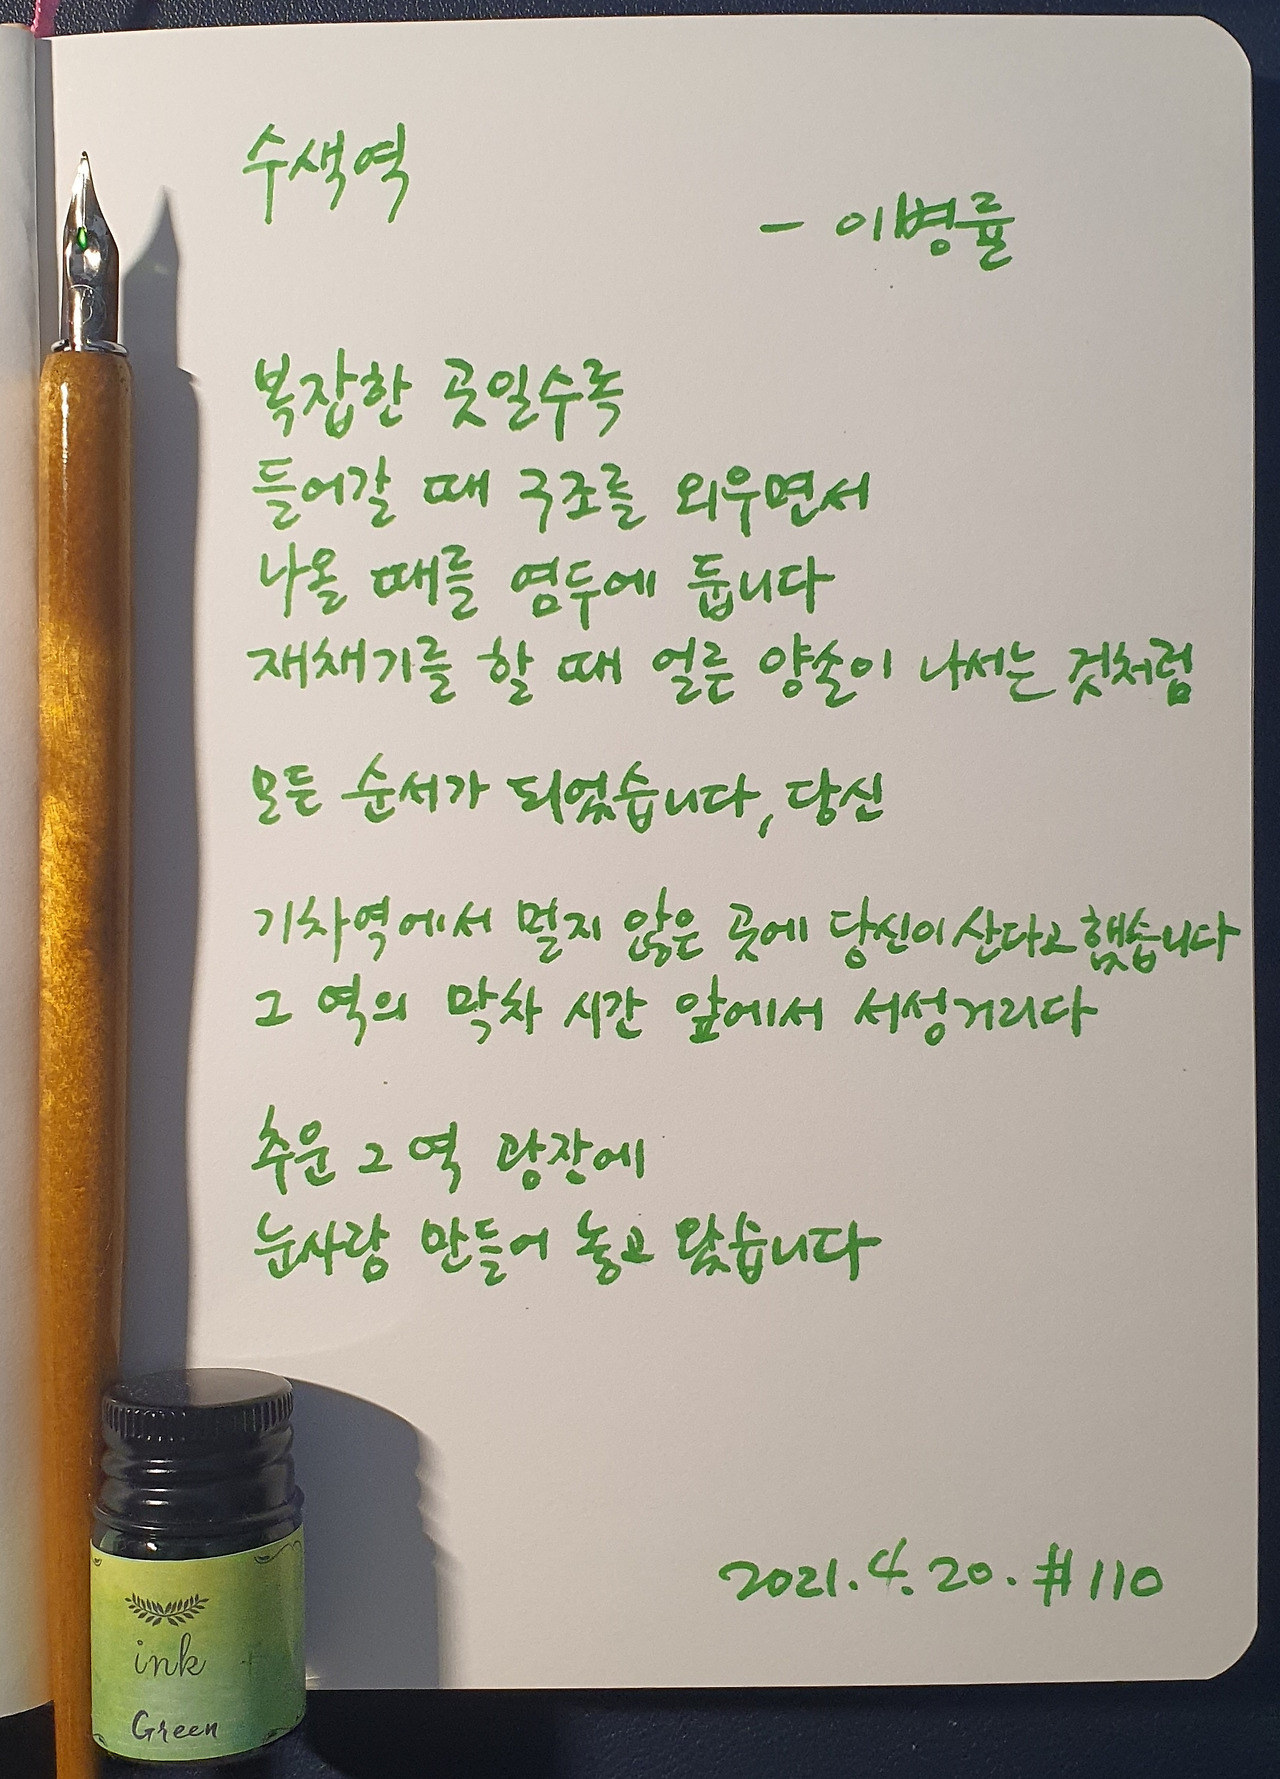 수색역
- 이병률
복잡한 곳일수록
들어갈 때 구조를 외우면서
나올 때를 염두에 둡니다
재채기를 할 때 얼른 양손이 나서는 것처럼
모든 순서가 되었습니다, 당신
기차역에서 멀지 않은 곳에 당신이 산다고 했습니다
그 역의 막차 시간 앞에서 서성거리다
추운 그 역 광장에
눈사람 만들어 놓고 왔습니다
2021. 4. 20. #110
ink
Green